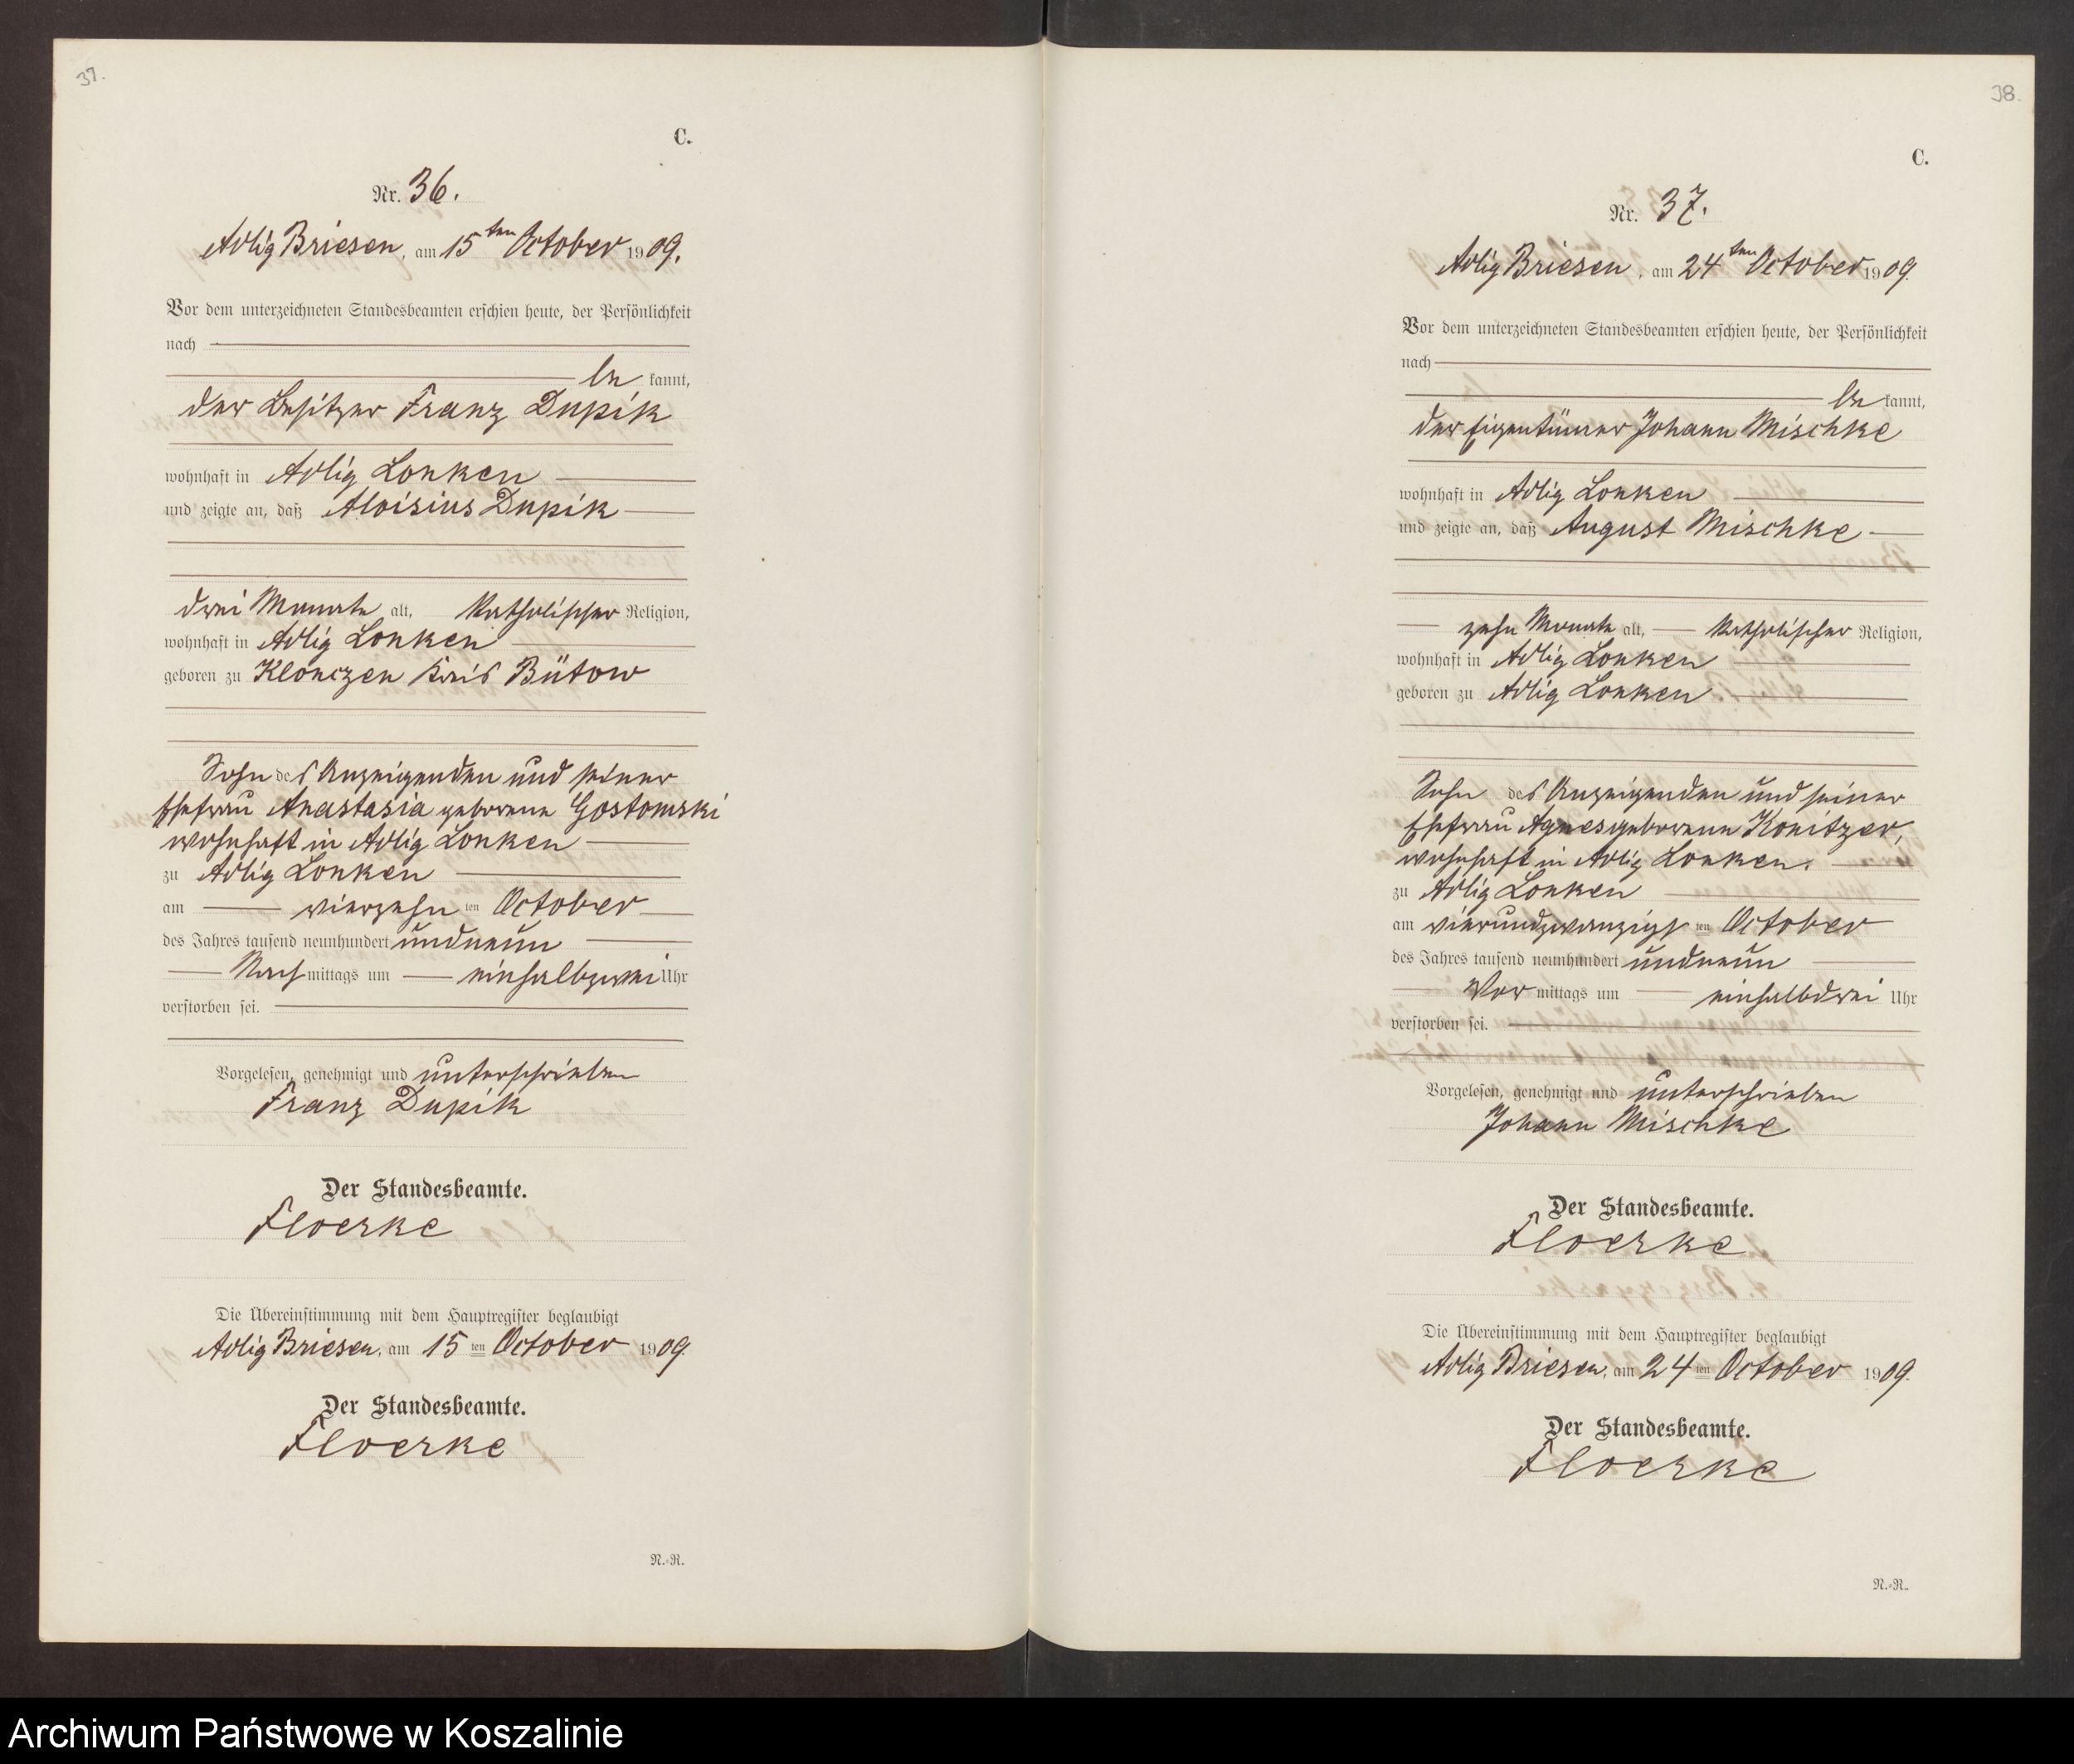 37.
C.
Nr. 36.
Adlig Briesen, am 15ten October 1909.
Vor dem unterzeichneten Standesbeamten erschien heute, der Persönlichkeit
nach
be kannt,
der Besitzer Franz Dupik
wohnhaft in Adlig Lonken
und zeigte an, daß Aloisius Dupik
drei Monate alt, katholischer Religion,
wohnhaft in Adlig Lonken
geboren zu Klonczen Kreis Bütow
Sohn des Anzeigenden und seiner
Ehefrau Anastasia geborene Gostomski
wohnhaft in Adlig Lonken
zu Adlig Lonken
am vierzehn ten October
des Jahres tausend neunhundert und neun
Nach mittags um einhalbzwei Uhr
verstorben sei.
Vorgelesen, genehmigt und unterschrieben
Franz Dupik
Der Standesbeamte.
Floerke
Die Übereinstimmung mit dem Hauptregister beglaubigt
Adlig Briesen, am 15 ten October 1909.
Der Standesbeamte.
Floerke
N.-R.
38.
C.
Nr. 37.
Adlig Briesen, am 24ten October 1909.
Vor dem unterzeichneten Standesbeamten erschien heute, der Persönlichkeit
nach
be kannt,
der Eigentümer Johann Mischke
wohnhaft in Adlig Lonken
und zeigte an, daß August Mischke
zehn Monate alt, katholischer Religion,
wohnhaft in Adlig Lonken
geboren zu Adlig Lonken
Sohn des Anzeigenden und seiner
Ehefrau Agnes geborene Konitzer,
wohnhaft in Adlig Lonken.
zu Adlig Lonken
am vierundzwanzigs ten October
des Jahres tausend neunhundert und neun
Vor mittags um einhalbdrei Uhr
verstorben sei.
Vorgelesen, genehmigt und unterschrieben
Johann Mischke
Der Standesbeamte.
Floerke
Die Übereinstimmung mit dem Hauptregister beglaubigt
Adlig Briesen, am 24 ten October 1909.
Der Standesbeamte.
Floerke
N.-R.
Archiwum Państwowe w Koszalinie